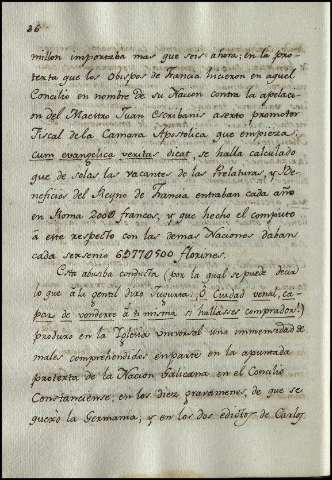 36
millon importaba mas que seis ahora; en la pro-
texta que los Obispos de Francia hicieron en aquel
Concilio en nombre de su Nacion contra la apelac-
on del Maestro Juan Escribanis aserto promotor
Fiscal de la Camara Apostolica que empieza:
Cum evangelica veritas dicat, se halla calculado
que de solas las vacantes de las Prelaturas, y Be-
neficios del Reyno de Francia entraban cada año
en Roma 200@ francos, y que hecho el computo
a este respecto con las demas Naciones daban
cada sexsenio 697700500 florines.
Esta abusiba conducta (por la qual se puede decir
lo que a la gentil dixo Jugurta: O Ciudad venal, ca-
paz de venderte a ti misma si hallasses comprador!)
produxo en la Iglesia universal una immensidad de
males comprehendidos en parte en la apuntada
protexta de la Nacion Galicana en el Concilio
Constanciense; en los diez gravamenes, de que se
quexò la Germania; y en los dos edictos de Carlos